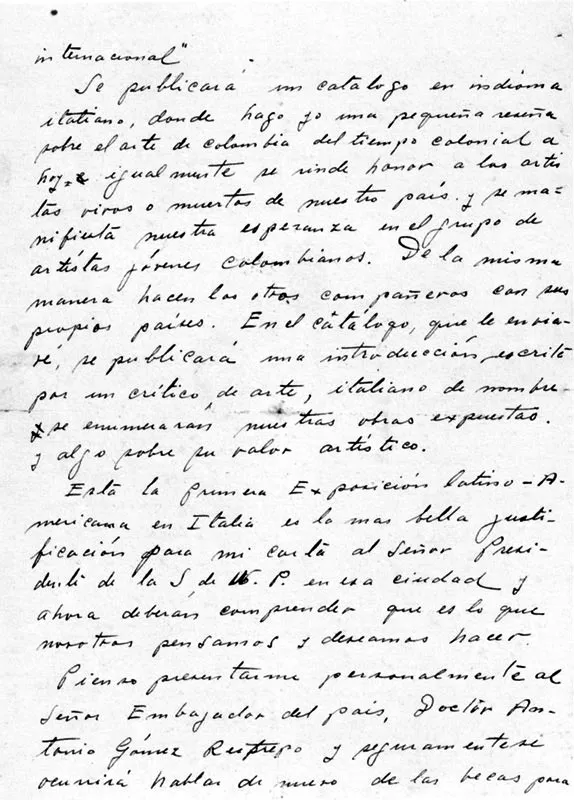 internacional"
Se publicará un catálogo en indioma
italiano, donde hago yo una pequeña reseña
sobre el arte de colombia del tiempo colonial a
hoy igualmente se rinde honor a los artis
tas vivos o muertos de nuestro país. y se ma-
nifiesta nuestra esperanza en el grupo de
artistas jóvenes colombianos. De la misma
manera hacen los otros compañeros con sus
propios países. En el cátálogo, que le envia-
ré, se publicará una introducción, escrita
por un crítico de arte, italiano de nombre
se enumerarán nuestras obras expuestas.
y algo sobre su valor artístico.
Está la primera Exposición latino-A-
mericana en Italia es la mas bella justi-
ficación para mi carta al Señor Presi-
dente de la S de P. en esa ciudad y
ahora deberán comprender que es lo que
nosotros pensamos y deseamos hacer.
Pienso presentarme personalmente al
Señor Embajador del país, Doctor An-
tonio Gómez Restrepo y seguramente se
ocurrirá hablar de nuevo de las becas para